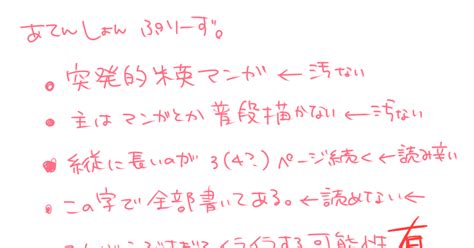 あてんしょん ぷりーず。
• 突発的朱英マンガ ← 汚ない
• 主はマンガとか普段描かない ← 汚ない
• 縦に長いのが 3(4?)ページ続く ← 読み辛い
• この字で全部書いてある。← 読めない ←
イライラする可能性有